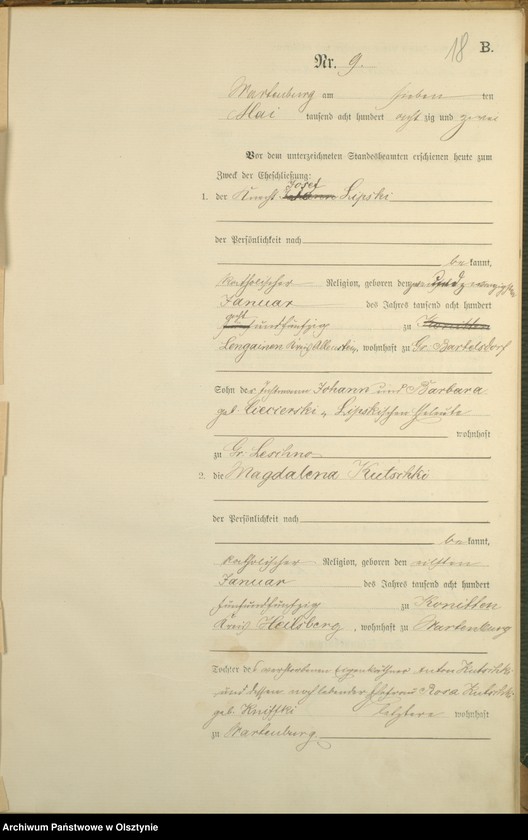 18 B.
Nr. 9.
Wartenburg am sieben ten
Mai tausend acht hundert acht zig und zwei
Vor dem unterzeichneten Standesbeamten erschienen heute zum
Zweck der Eheschließung:
Josef
1. der Knecht Johann Lipski
der Persönlichkeit nach
be kannt,
katholischer Religion, geboren den
Januar des Jahres tausend acht hundert
acht
fünf undfünfzig zu Konitten
Lengainen Kreis Allenstein, wohnhaft zu Gr. Bartelsdorf
Sohn der Instmann Johann und Barbara
geb. Ciecierski, Lipskischen Eheleute
wohnhaft
zu Gr. Leschno
2. die Magdalena Kutschki
der Persönlichkeit nach
be kannt,
katholischer Religion, geboren den elften
Januar des Jahres tausend acht hundert
fünfundfünfzig zu Konitten
Kreis Heilsberg, wohnhaft zu Wartenburg
Tochter des verstorbenen Eigenkäthner Anton Kutschki
und dessen noch lebender Ehefrau Rosa Kutschki
geb. Kniffki letztere wohnhaft
zu Wartenburg.
Archiwum Państwowe w Olsztynie